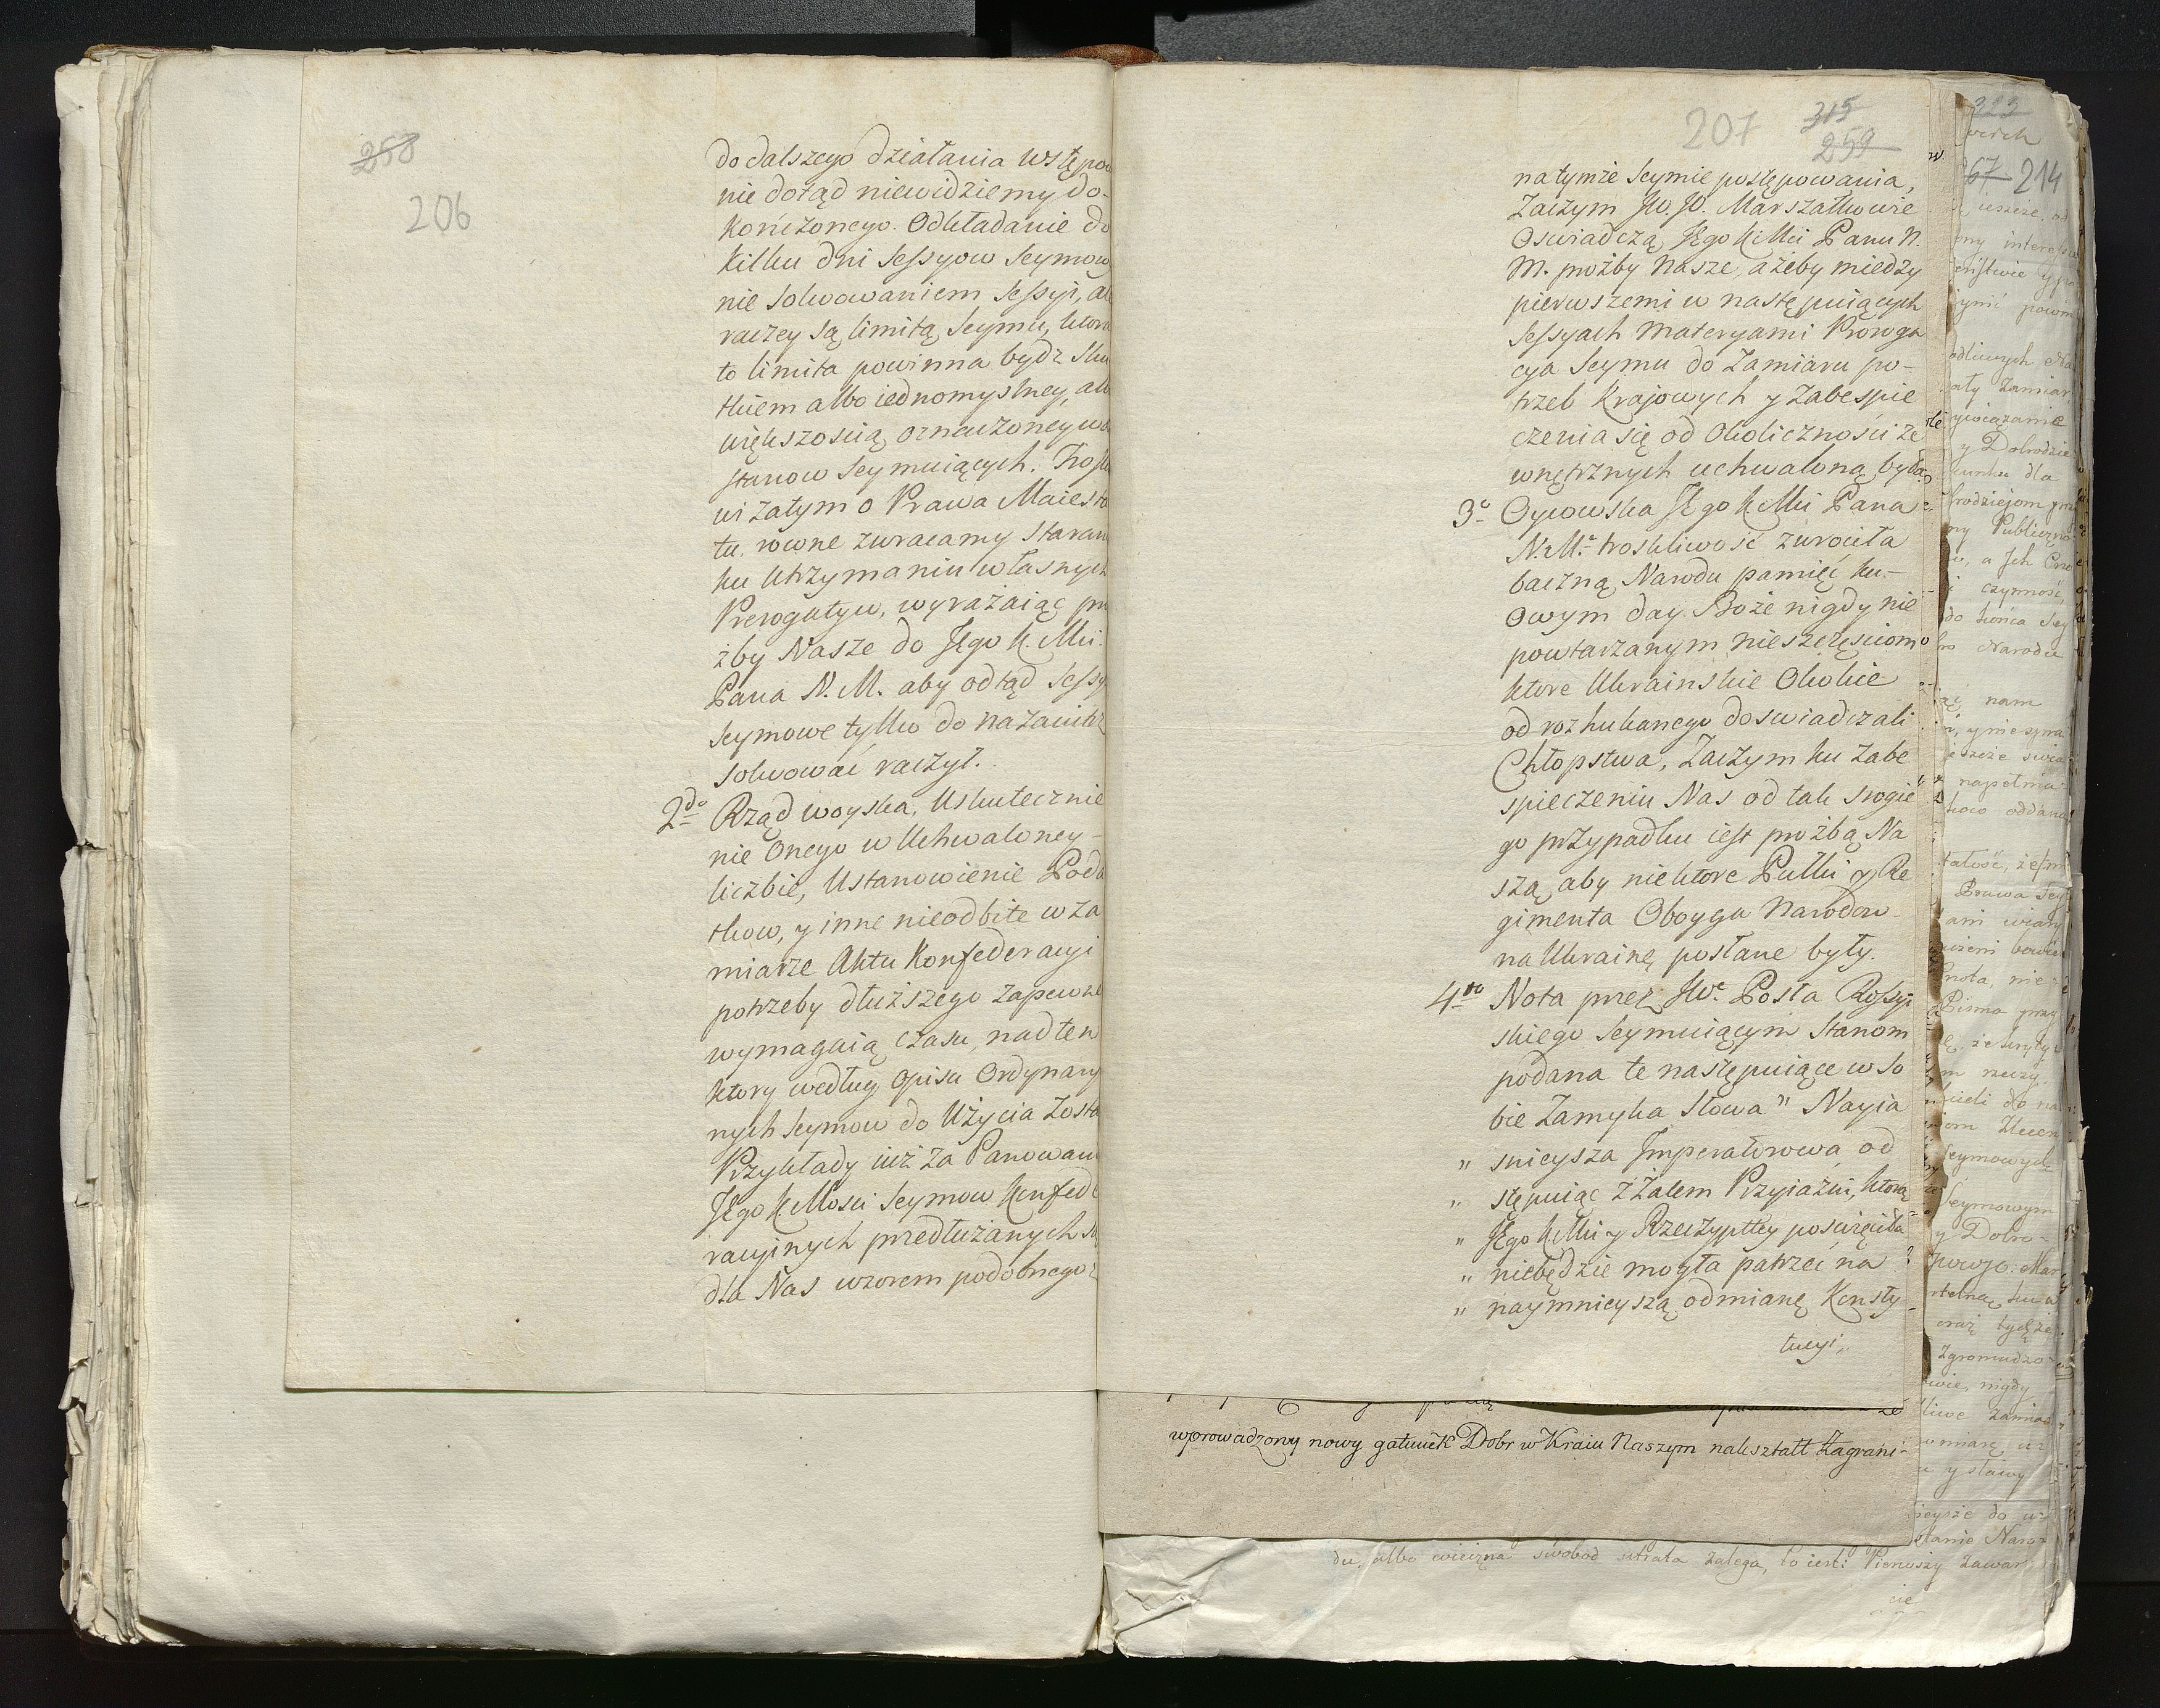 258
206
do dalszego działania wstępow
nie dotąd niewidziemy do-
kończonego. Odkładanie do
kilku dni Sessyow Seymow
nie solwowaniem Sessyi, ale
raczey są limitą Seymu, ktora
to limita powinna bydz sku
tkiem albo iednomyslney, alb
większością oznaczoney wo
stanow Seymuiących. Trosk
wi zatym o Prawa Maiesta
tu, rowne zwracamy staran
ku Utrzymaniu własnych
Prerogatyw, wyrażaiąc pro
źby Nasze do JEgo K. Mci
Pana N. M. aby odtąd Sessy
Seymowe tylko do nazaiutrz
solwowac raczył.
2do Rząd woyska, Uskutecznie
nie Onego w Uchwaloney-
liczbie, Ustanowienie Poda
tkow, y inne nieodbite w za
miarze Aktu Konfederacyi
potrzeby dłuższego zapewne
wymagaią czasu, nad ten
ktory według opisu Ordynary
nych Seymow do Użycia zosta
Przykłady iuż za Panowani
JEgo K. Mosci Seymow Konfede
racyinych przedłużanych są
dla Nas wzorem podobnego
207
315
259
na tymże Seymie postępowania,
Zaczym JW. JW. Marszałkowie
Oswiadczą JEgo K Mci Panu N.
M. proźby Nasze, ażeby między
pierwszemi w następuiących
Sessyach materyami Proroga
cya Seymu do Zamiaru po-
trzeb Krajowych y Zabespie
czenia się od Okoliczności ze
wnętrznych uchwaloną była
3o Oycowska JEgo K Mci Pana
N. M. troskliwość zwrociła
baczną Narodu pamięć ku-
Owym day Boże nigdy nie
powtarzanym nieszczęsciom
ktore Ukrainskie Okolice
od rozhukanego doswiadczali
Chłopstwa, Zaczym ku zabe
spieczeniu Nas od tak srogie
go przypadku iest proźbą Na
szą, aby niektore Pułki y Re
gimenta Oboyga Narodow
na Ukrainę posłane były.
4to Nota przez JWo Posła Rossyi
skiego Seymuiącym Stanom
podana te następuiące w so
bie Zamyka słowa" Nayia
" snieysza Imperatorowa od
" stępuiąc z Żalem Przyiaźni, ktorą
" JEgo K Mci y Rzeczypltey poswięciła
" niebędzie mogła patrzeć na
" naymnieyszą odmianę Konsty
tucyi,
wprowadzony nowy gatunek Dobr w Kraiu Naszym nakształt Zagrani-
du, albo wieczna swobod utrata zalega, to iest: Pierwszy zawar
cie
323
267 214
y Dobrodzie
dla
Publiczno
czynność,
do końca Sey
Narodu
nam
napełnia
oddana
Prawa Sey
Pisma przy
Seymowych
Seymowym
y Dobro-
Zgromadzo
nigdy
y sławy